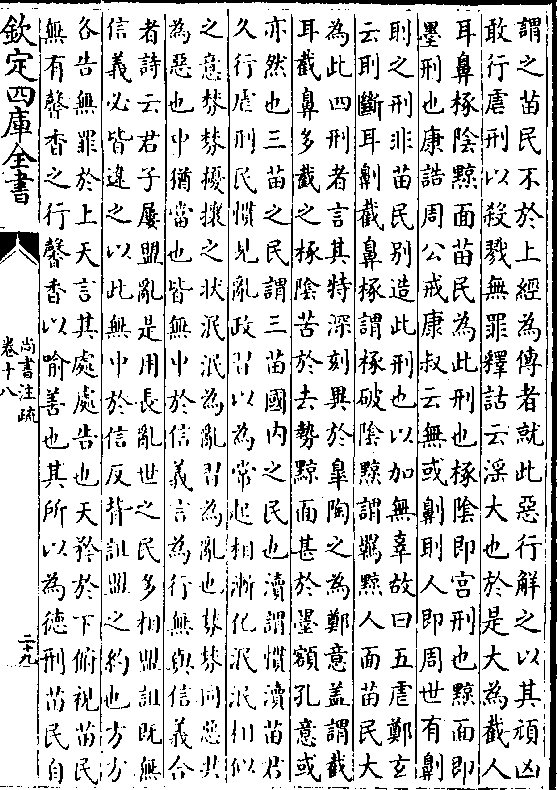 謂之苗民不於上經為傳者就此惡行解之以其頑凶
敢行虐刑以殺戮無罪釋詁云淫大也於是大為截人
耳鼻椓陰黥面苗民為此刑也椓陰即宮刑也黥面即
墨刑也康誥周公戒康叔云無或劓刵人即周世有劓
刵之刑非苗民別造此刑也以加無辜故曰五虐鄭玄
云刵斷耳劓截鼻椓謂椓破陰黥謂羈黥人面苗民大
為此四刑者言其特深刻異於臯陶之為鄭意蓋謂截
耳截鼻多截之椓陰苦於去勢黥面甚於墨額孔意或
亦然也三苗之民謂三苗國內之民也瀆謂慣瀆苗君
久行虐刑民慣見亂政習以為常起相漸化泯泯相似
之意棼棼擾攘之狀泯泯為亂習為亂也棼棼同惡共
為惡也中猶當也皆無中於信義言為行無與信義合
者詩云君子屢盟亂是用長亂世之民多相盟詛既無
信義必皆違之以此無中於信反背詛盟之約也方方
各告無罪於上天言其處處告也天矜於下俯視苗民
無有馨香之行馨香以喻善也其所以為德刑苗民自
欽定四庫全書
尚書注疏
卷十八
二十九